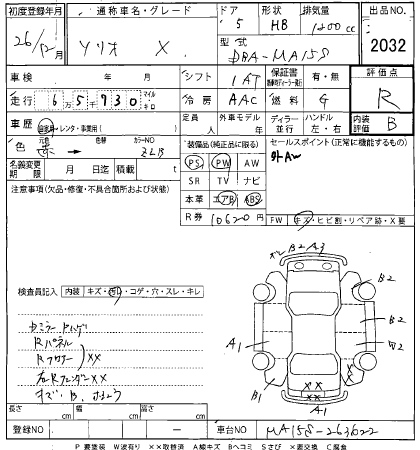 初度登録年月 通称車名・グレード ドア 形状 排気量 出品NO.
26/12月 ソリオ X. 5 HB 1200cc 2032
型式 DBA-MA15S
車検 年 月 シフト 1AT 保証書 有・無 評価点
走行 6万5千930 マイル キロ 冷房 AAC 燃料 G R
車歴 自家用・レンタ・事業用( ) 定員 人 外車モデル 年 ディーラー 並行 ハンドル 左・右 内装 B
色 元色 色替 カラーNO ZLB 装備品(純正品に限る) セールスポイント(正常に機能するもの)
PS PW AW 外AW
名義変更期限 月 日迄 積載 t SR TV ナビ
本革 エアB ABS
注意事項(欠品・修復・不具合箇所および状態) R券 10620円 FW キズ・ヒビ割・リペア跡・X要
B2 A3
検査員記入 内装 キズ・汚れ・コゲ・穴・スレ・キレ B2
B2
Rパネル A1
Rフロアー XX
右RフェンダーXX B1
キズ、B. XX
A1
長さ cm 幅 cm 高さ cm
登録NO - 車台NO MA15S-263622
P要塗装 W波有り XX取替済 A線キズ Bヘコミ Sさび X要交換 C腐食